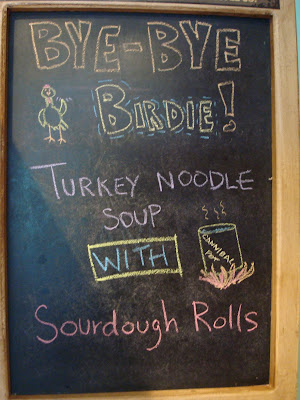 BYE-BYE
BIRDIE!
TURKEY NOODLE
SOUP
WITH
CANNIBAL
POT
Sourdough Rolls